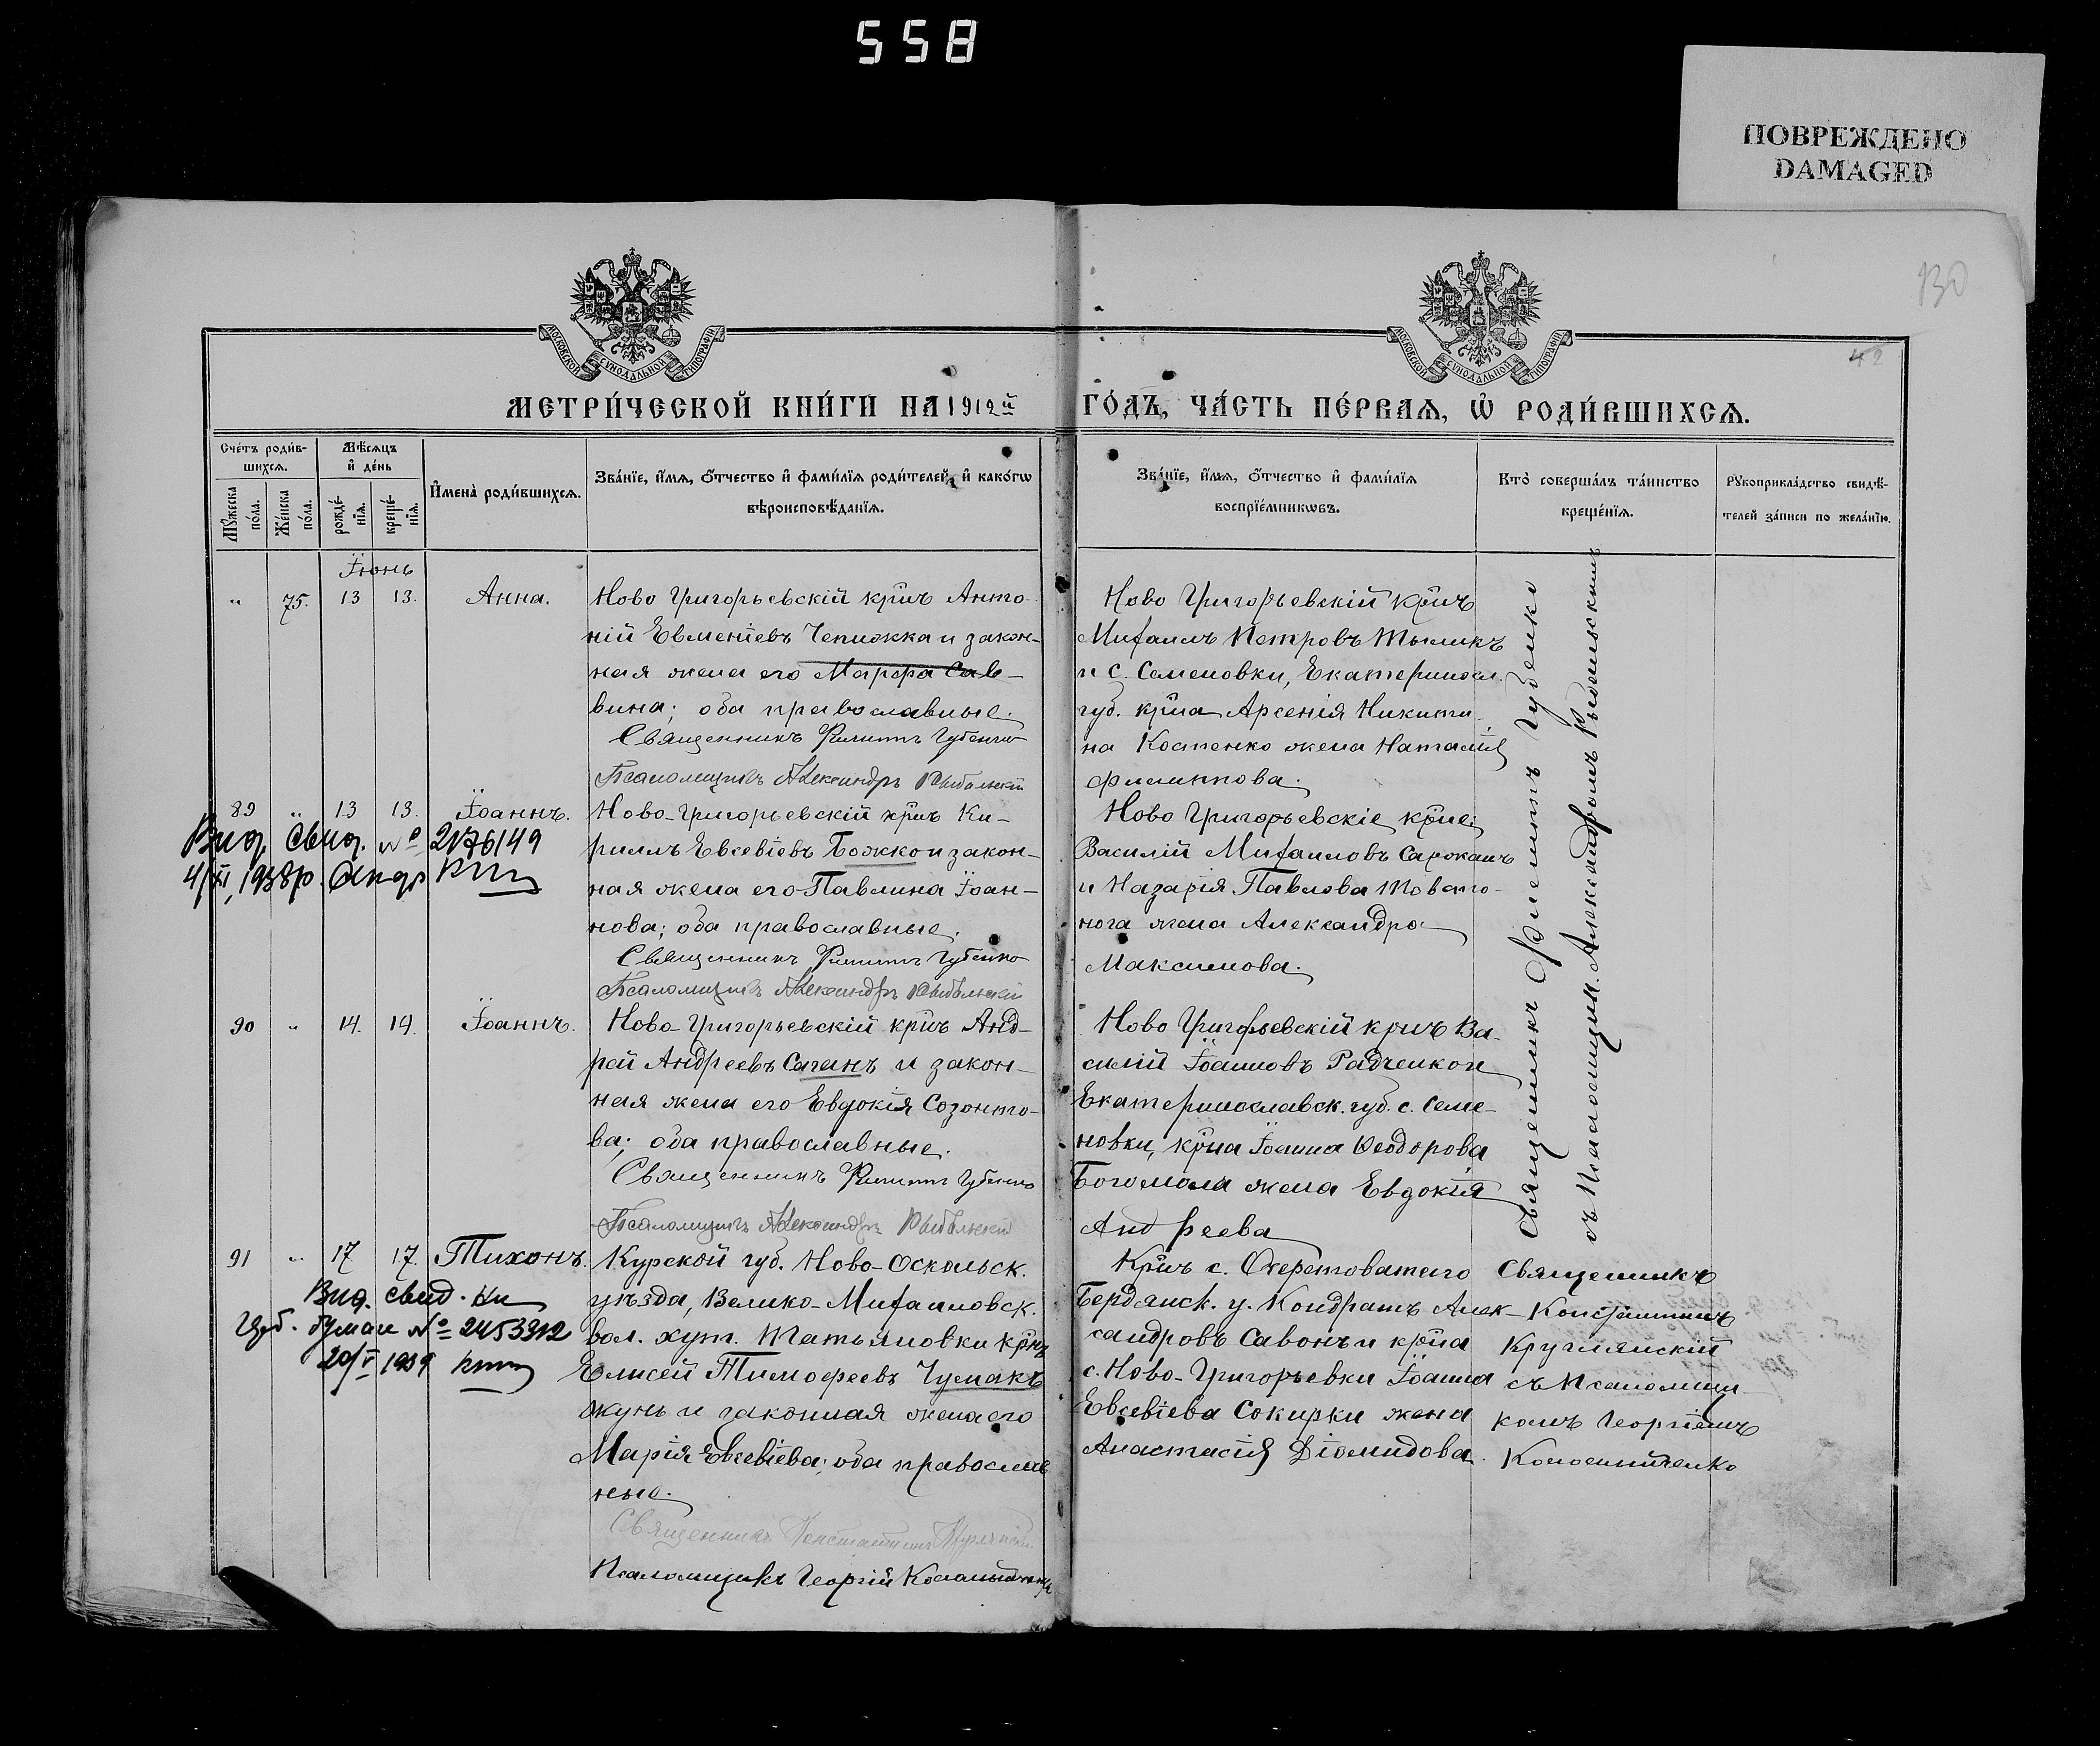 558
ПОВРЕЖДЕНО
DAMAGED
130
42
МОСКОВСКОЙ СѴНОДАЛЬНОЙ ТИПОГРАФІИ
МОСКОВСКОЙ СѴНОДАЛЬНОЙ ТИПОГРАФІИ
МЕТРИ́ЧЕСКОЙ КНИ́ГИ НА 1912й ГО́ДЪ, ЧА́СТЬ ПЕ́РВАѦ, Ѡ҆ РОДИ́ВШИХСѦ.
Сче́тъ роди́в-
шихсѧ.
Мѣ́сѧцъ
и҆ де́нь
Мꙋ́жеска по́ла.
Же́нска по́ла.
рожде́-
нїѧ.
креще́-
нїѧ.
И҆мена̀ роди́вшихсѧ.
Зва́нїе, и҆́мѧ, ѻ҆́тчество и҆ фами́лїѧ роди́телей, и҆ како́гѡ
вѣроисповѣ́данїѧ.
Зва́нїе, и҆́мѧ, ѻ҆́тчество и҆ фами́лїѧ
воспрїе́мникѡвъ.
Кто̀ соверша́лъ та́инство
креще́нїѧ.
Рꙋкоприкла́дство свидѣ́-
телей за́писи по жела́нїю.
Іюнь
" 75. 13 13. Анна.
Ново Григорьевскій крнъ Анто-
ній Евменіевъ Чепижка и закон-
ная жена его Марфа Сав-
вина; оба православные.
Священникъ Филиппъ Губенко
Псаломщикъ Александръ Рыбальскій
Ново Григорьевскій крнъ
Михаилъ Петровъ Тыликъ
и с. Семеновки, Екатериносл.
губ. крна Арсенія Никити-
на Костенко жена Наталія
Филиппова.
89 " 13 13. Іоаннъ.
Вид. Свид. № 2176149
4/XI, 1938р.
Ново-Григорьевскій крнъ Ки-
риллъ Евсевіевъ Божко и закон-
ная жена его Павлина Іоан-
нова; оба православные.
Священникъ Филиппъ Губенко
Псаломщикъ Александръ Рыбальскій
Ново Григорьевскіе крне:
Василій Михаиловъ Сарожанъ
и Назарія Павлова Товсто-
нога жена Александра
Максимова.
90 " 14. 14. Іоаннъ.
Ново-Григорьевскій крнъ Анд-
рей Андреевъ Саганъ и закон-
ная жена его Евдокія Созонто-
ва; оба православные.
Священникъ Филиппъ Губенко
Псаломщикъ Александръ Рыбальскій
Ново Григорьевскій крнъ Ва-
силій Іоанновъ Радченко и
Екатеринославск. губ. с. Семе-
новки, крна Іоанна Феодорова
Богомола жена Евдокія
Андреева
Священникъ Филиппъ Губенко
съ Псаломщик. Александромъ Рыбальскимъ
91 " 17 17. Тихонъ.
Вид. свид. на
герб. бумаге № 2453912
20/V 1939
Курской губ. Ново-Оскольск.
уѣзда, Велико-Михаиловск.
вол. хут. Татьяновки крнъ
Елисей Тимофеевъ Чумакъ
Жунь и законная жена его
Марія Евсевіева; оба православ
ные.
Священникъ Константинъ Круглянскій
Псаломщикъ Георгій Коломийченко
Крнъ с. Очеретоватого
Бердянск. у. Кондратъ Алек-
сандровъ Савонъ и крна
с. Ново-Григорьевки Іоанна
Евсевіева Сокирки жена
Анастасія Діомидова.
Священникъ
Константинъ
Круглянскій
съ псаломщи-
комъ Георгіемъ
Коломийченко